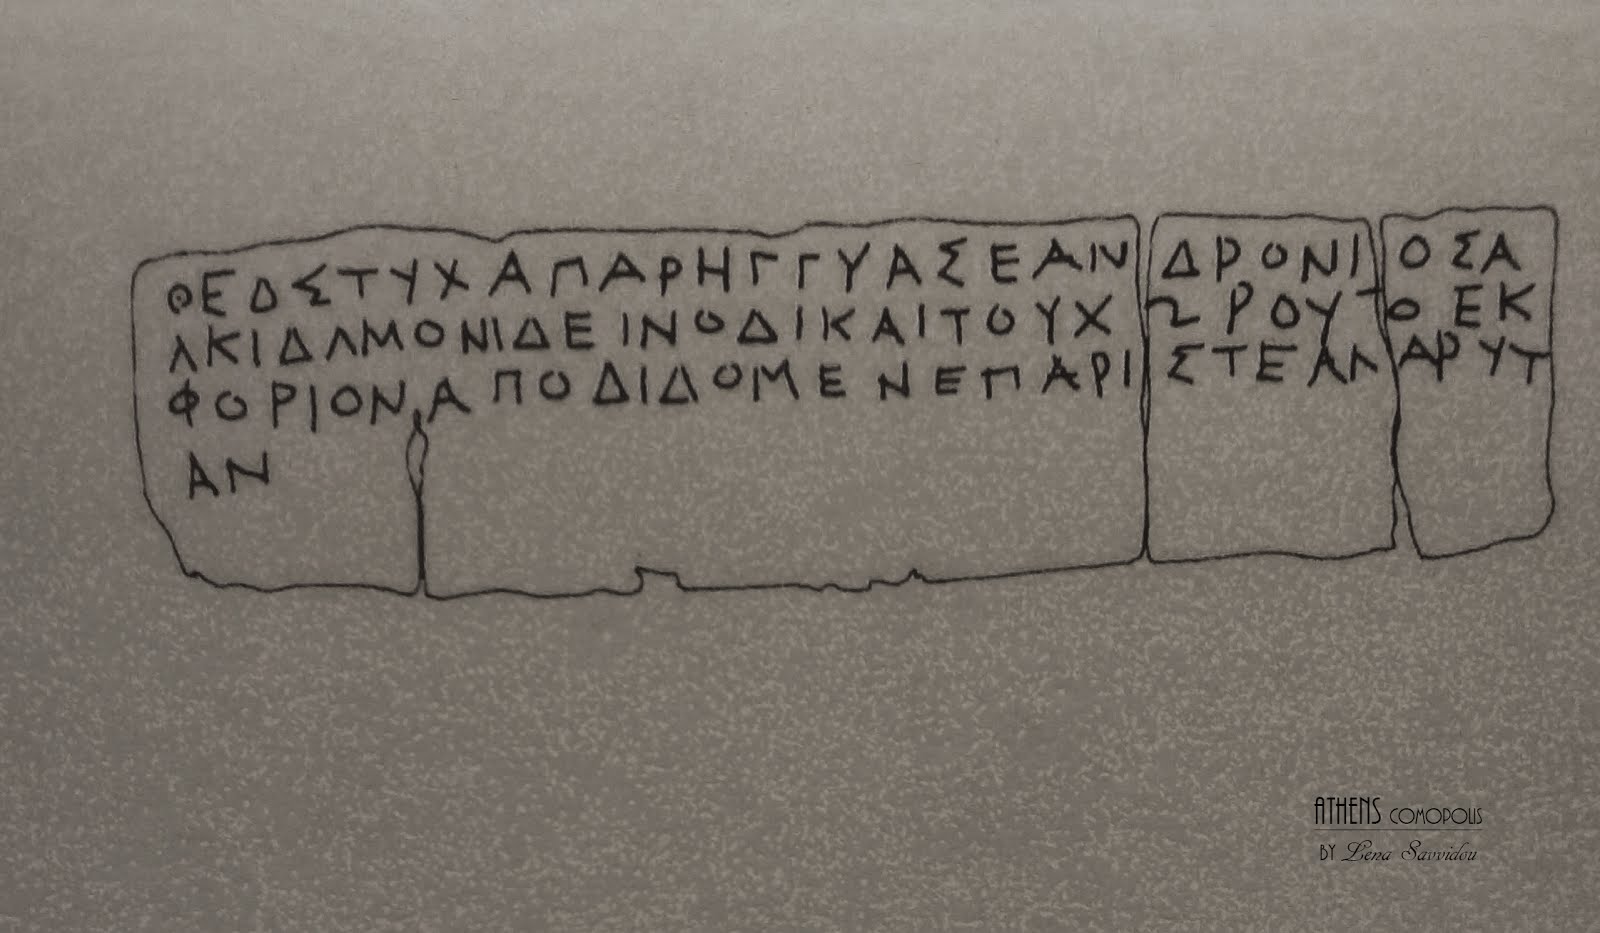 ΘΕΔΣΤΥΧΑΠΑΡΗΓΓΥΑΣΕΑΝΔΡΟΝΙΟΣΑ
ΛΚΙΔΑΜΟΝΙΔΕΙΝΟΔΙΚΑΙΤΟΥΧΩΡΟΥΤΟΕΚ
ΦΟΡΙΟΝΑΠΟΔΙΔΟΜΕΝΕΠΑΡΙΣΤΕΑΛΑΡΥΤ
ΑΝ
ATHENS COMOPOLIS
BY Lena Savvidou